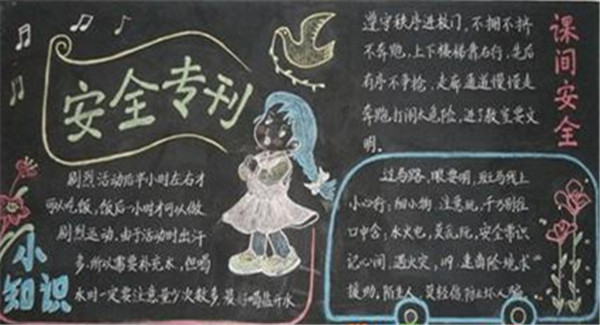 安全专刊
剧烈活动后半小时左右才
可以吃饭,饭后一小时才可以做
剧烈运动。由于活动时出汗
多,所以需要补充水,但喝
水时一定要注意量少次数多,最好喝温开水
小
知识
遵守秩序进校门,不拥不挤
不奔跑,上下楼梯靠右行,先后
有序不争抢,走廊通道慢慢走
奔跑打闹太危险,进了教室要文
明。
课间安全
过马路,眼要明,斑马线上
小心行;细小物 注意玩,千万别往
口中含;水火电,莫乱玩,安全常识
记心间,遇火灾,119 速离险境求
援助,陌生人 莫轻信,防止坏人骗